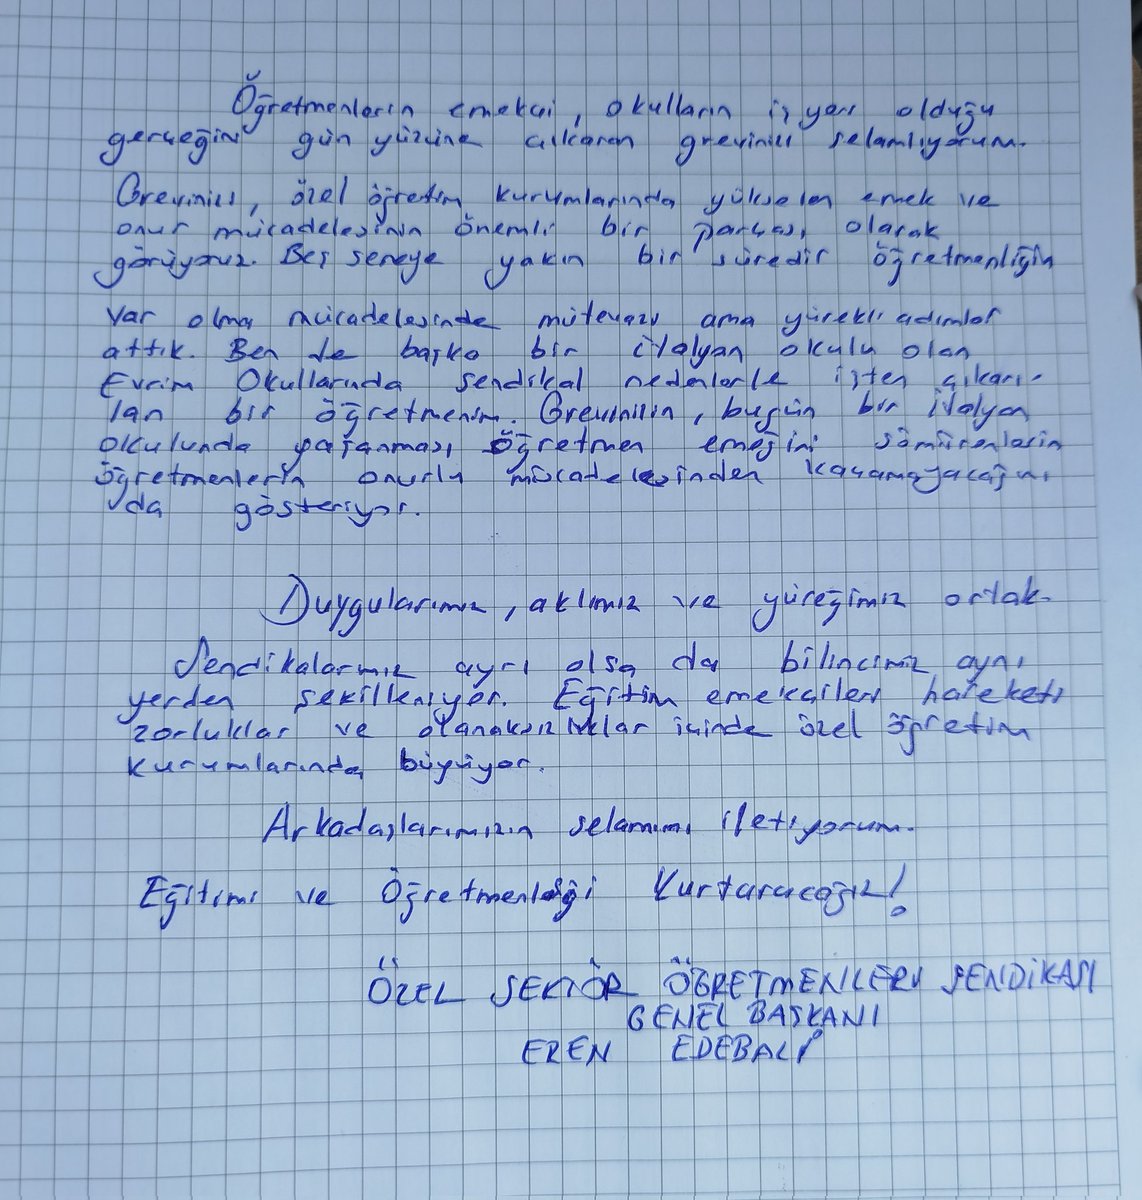 Öğretmenlerin emekçi, okulların iş yeri olduğu
gerçeğini gün yüzüne çıkaran grevinizi selamlıyorum.
Grevinizi, özel öğretim kurumlarında yükselen emek ve
onur mücadelesinin önemli bir parçası olarak
görüyoruz. Beş seneye yakın bir süredir öğretmenliğin
var olma mücadelesinde mütevazı ama yürekli adımlar
attık. Ben de başka bir İtalyan okulu olan
Evrim Okullarında sendikal nedenlerle işten çıkarı-
lan bir öğretmenim. Grevinizin, bugün bir İtalyan
okulunda yaşanması, öğretmen emeğini sömürenlerin
öğretmenlerin onurlu mücadelesinden kaçamayacağını
da gösteriyor.
Duygularımız, aklımız ve yüreğimiz ortak.
Sendikalarımız ayrı olsa da bilincimiz aynı
yerden şekilleniyor. Eğitim emekçileri hareketi
zorluklar ve olanaksızlıklar içinde özel öğretim
kurumlarında büyüyor.
Arkadaşlarımızın selamını iletiyorum.
Eğitimi ve Öğretmenliği Kurtaracağız!
ÖZEL SEKTÖR ÖĞRETMENLERİ SENDİKASI
GENEL BAŞKANI
EREN EDEBALİ